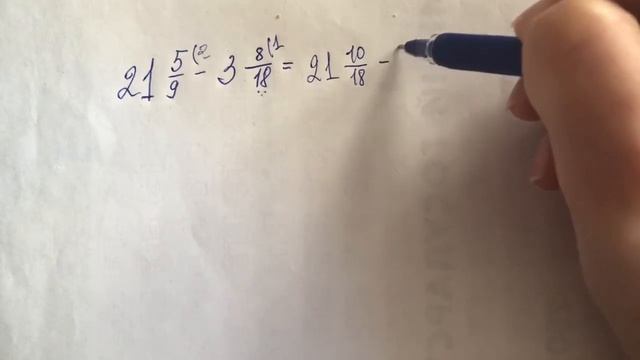 21 5/9 (2 - 3 8/18 (1 = 21 10/18 -